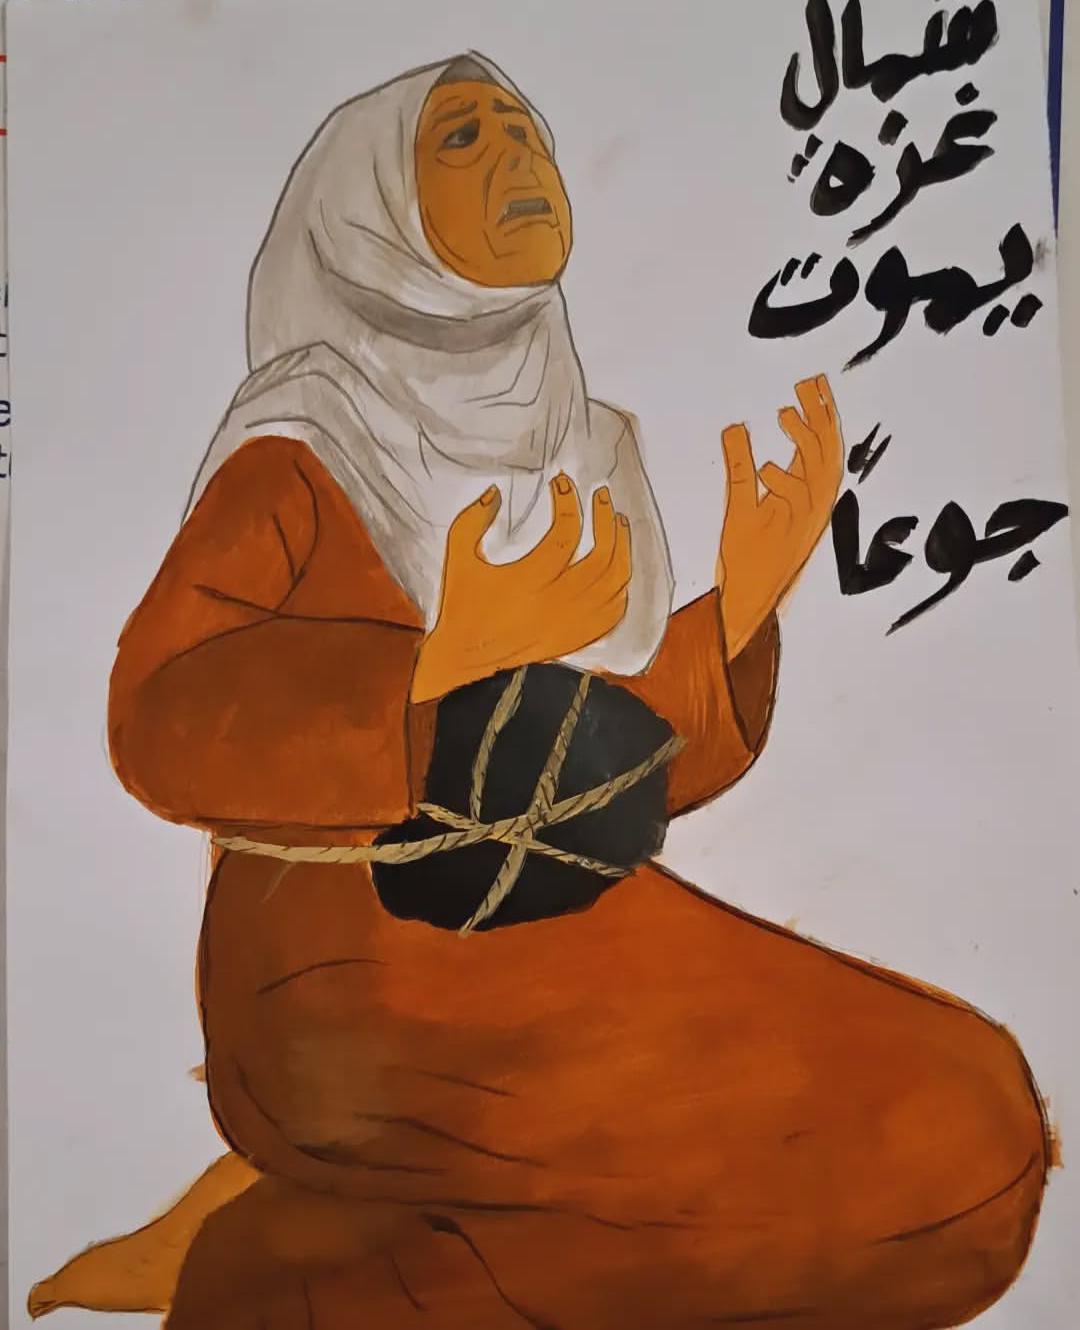 شمال
غزة
يموت
جوعاً